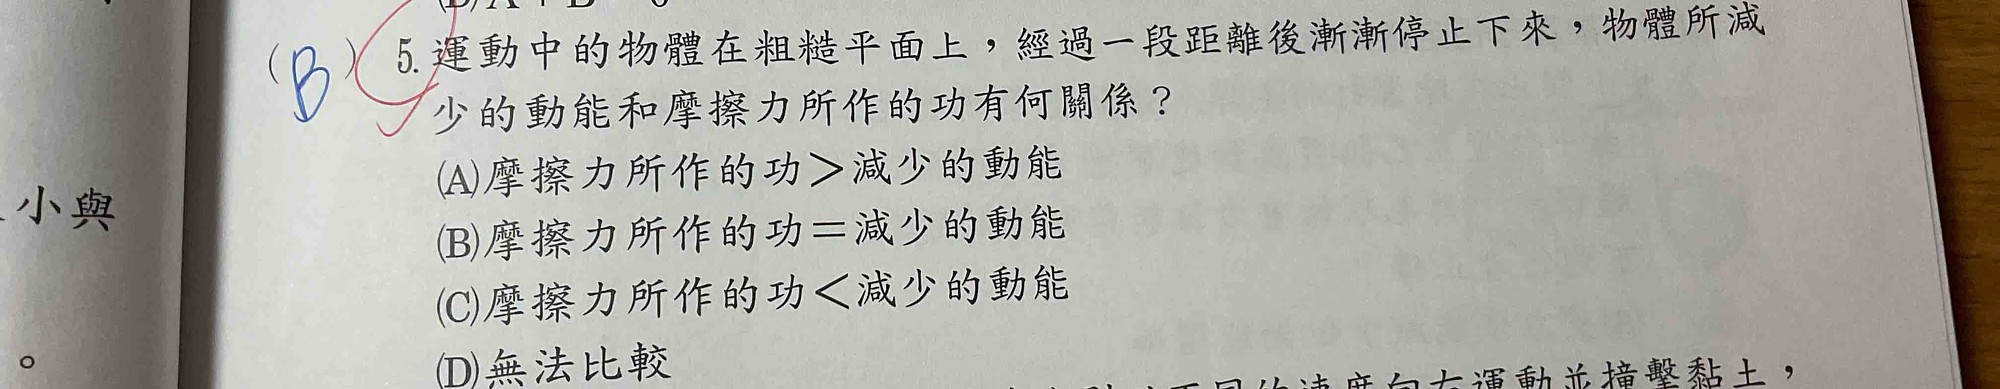 (B) 5. 運動中的物體在粗糙平面上，經過一段距離後漸漸停止下來，物體所減
少的動能和摩擦力所作的功有何關係？
(A)摩擦力所作的功＞減少的動能
(B)摩擦力所作的功＝減少的動能
(C)摩擦力所作的功＜減少的動能
(D)無法比較
速度向右運動並撞擊黏土，
小與
。